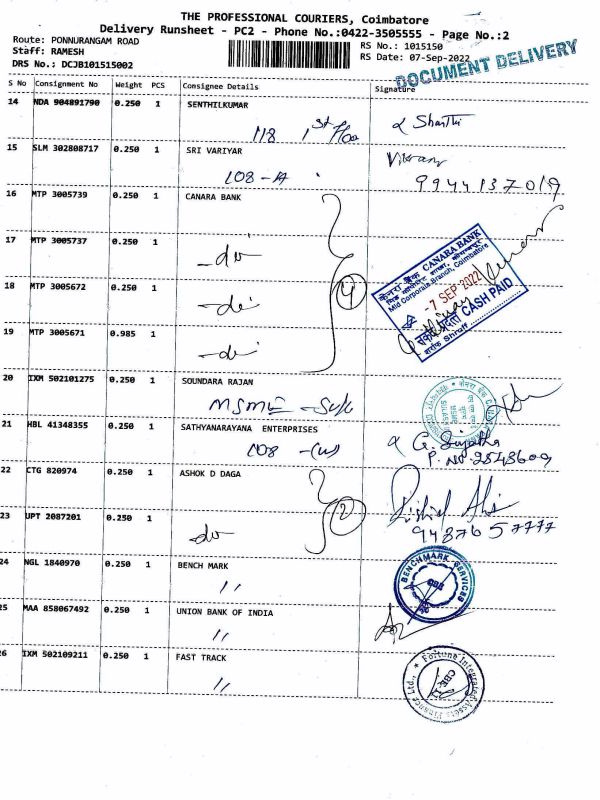 THE PROFESSIONAL COURIERS, Coimbatore
Delivery Runsheet - PC2 - Phone No.:0422-3505555 - Page No.:2
Route: PONNURANGAM ROAD RS No.: 1015150
Staff: RAMESH RS Date: 07-Sep-2022
DRS No.: DCJB101515002
DOCUMENT DELIVERY
S No Consignment No Weight PCS Consignee Details Signature
14 NDA 904891790 0.250 1 SENTHILKUMAR
118 1st Floor
Shanthi
15 SLM 302808717 0.250 1 SRI VARIYAR
108 - A
9944137019
16 MTP 3005739 0.250 1 CANARA BANK
17 MTP 3005737 0.250 1
-do-
18 MTP 3005672 0.250 1
-do-
4
19 MTP 3005671 0.985 1
-do-
केनरा बैंक CANARA BANK
Mid Corporate Branch, Coimbatore
-7 SEP 2022
CASH PAID
Shroff
20 IXM 502101275 0.250 1 SOUNDARA RAJAN
MSME
21 HBL 41348355 0.250 1 SATHYANARAYANA ENTERPRISES
108
G. Sujatha
P. No 2548609
22 CTG 820974 0.250 1 ASHOK D DAGA
2
23 UPT 2087201 0.250 1
-do-
9487657777
24 NGL 1840970 0.250 1 BENCH MARK
"
BENCHMARK SERVICES
CBE
25 MAA 858067492 0.250 1 UNION BANK OF INDIA
"
26 IXM 502109211 0.250 1 FAST TRACK
"
Fortune Integrated Assets Finance Ltd.,
CBE-11